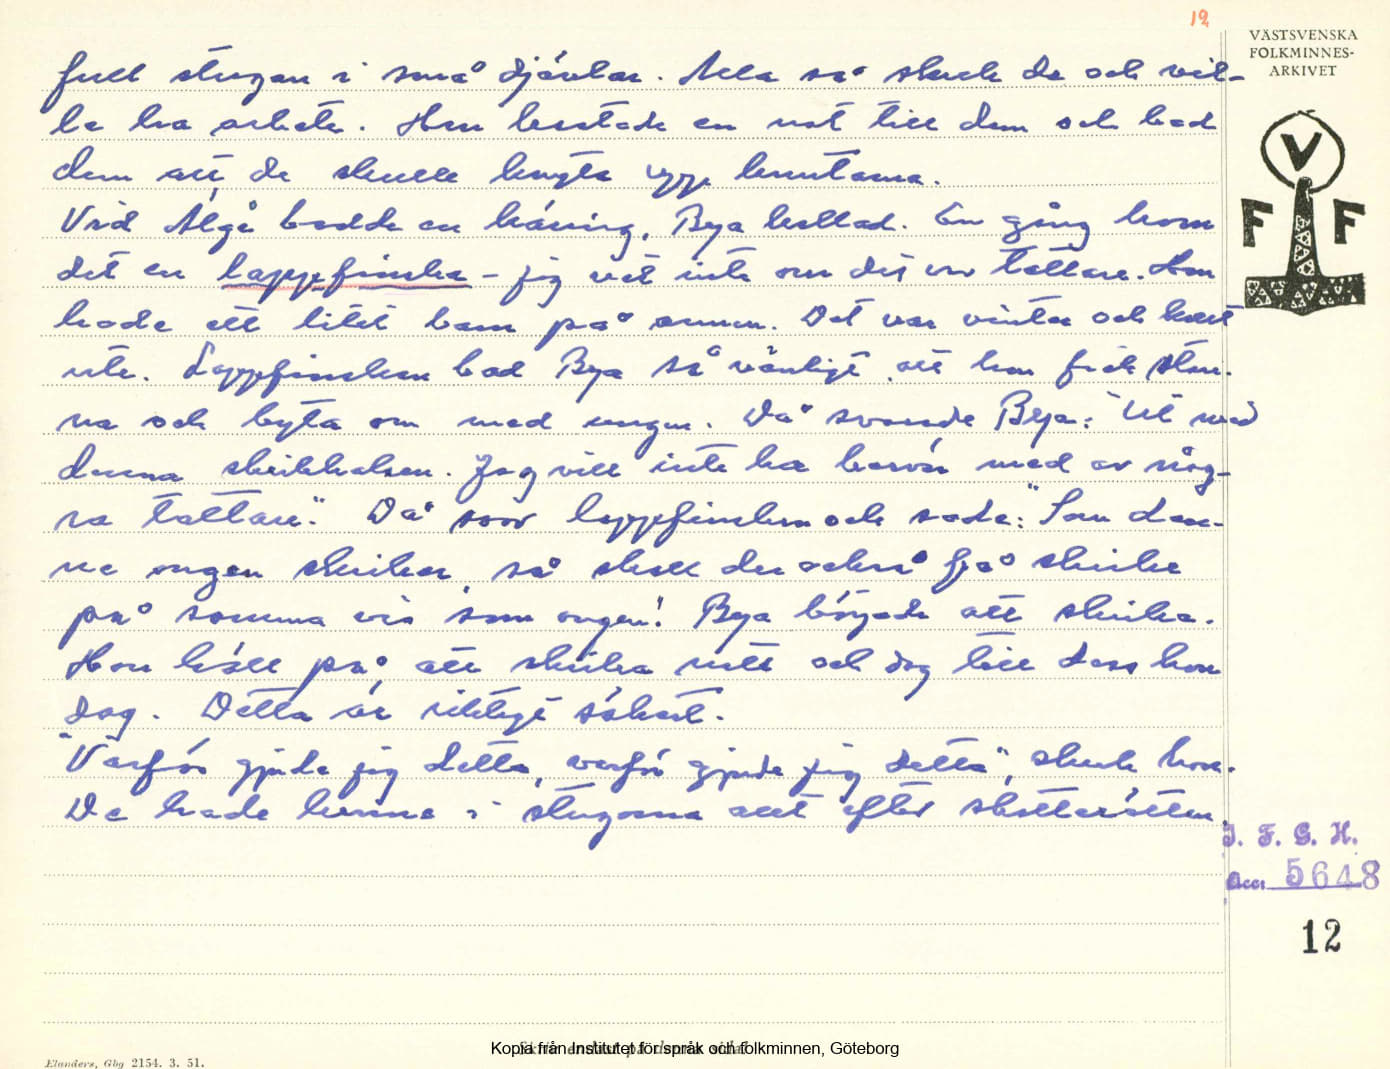 12
VÄSTSVENSKA
FOLKMINNES-
ARKIVET
V
F F
full stugan i små djävlar. Alla så skrek de och vil-
le ha arbete. Han kastade en not till dem och bad
dem att de skulle knyta upp knutarna.
Vid Älgå bodde en käring, Beja kallad. En gång kom
det en lappfinska – jag vet inte om det var tattare. Hon
hade ett litet barn på armen. Det var vinter och kallt
ute. Lappfinskan bad Beja så vänligt, att hon fick stan-
na och byta om med ungen. Då svarade Beja: "Ut med
denna skrikhalsen. Jag vill inte ha besvär med av någ-
ra tattare". Då svor lappfinskan och sade: "Som den-
ne ungen skriker, så skall du också få skrika
på samma vis som ungen". Beja började att skrika.
Hon höll på, att skrika natt och dag till dess hon
dog. Detta är riktigt säkert.
"Varför gjorde jag detta, varför gjorde jag detta", skrek hon.
De hade henne i stugorna allt efter skatterätten.
I. F. G. H.
Acc: 5648
12
Kopia från Institutet för språk och folkminnen, Göteborg
Elanders, Gbg 2154. 3. 51.